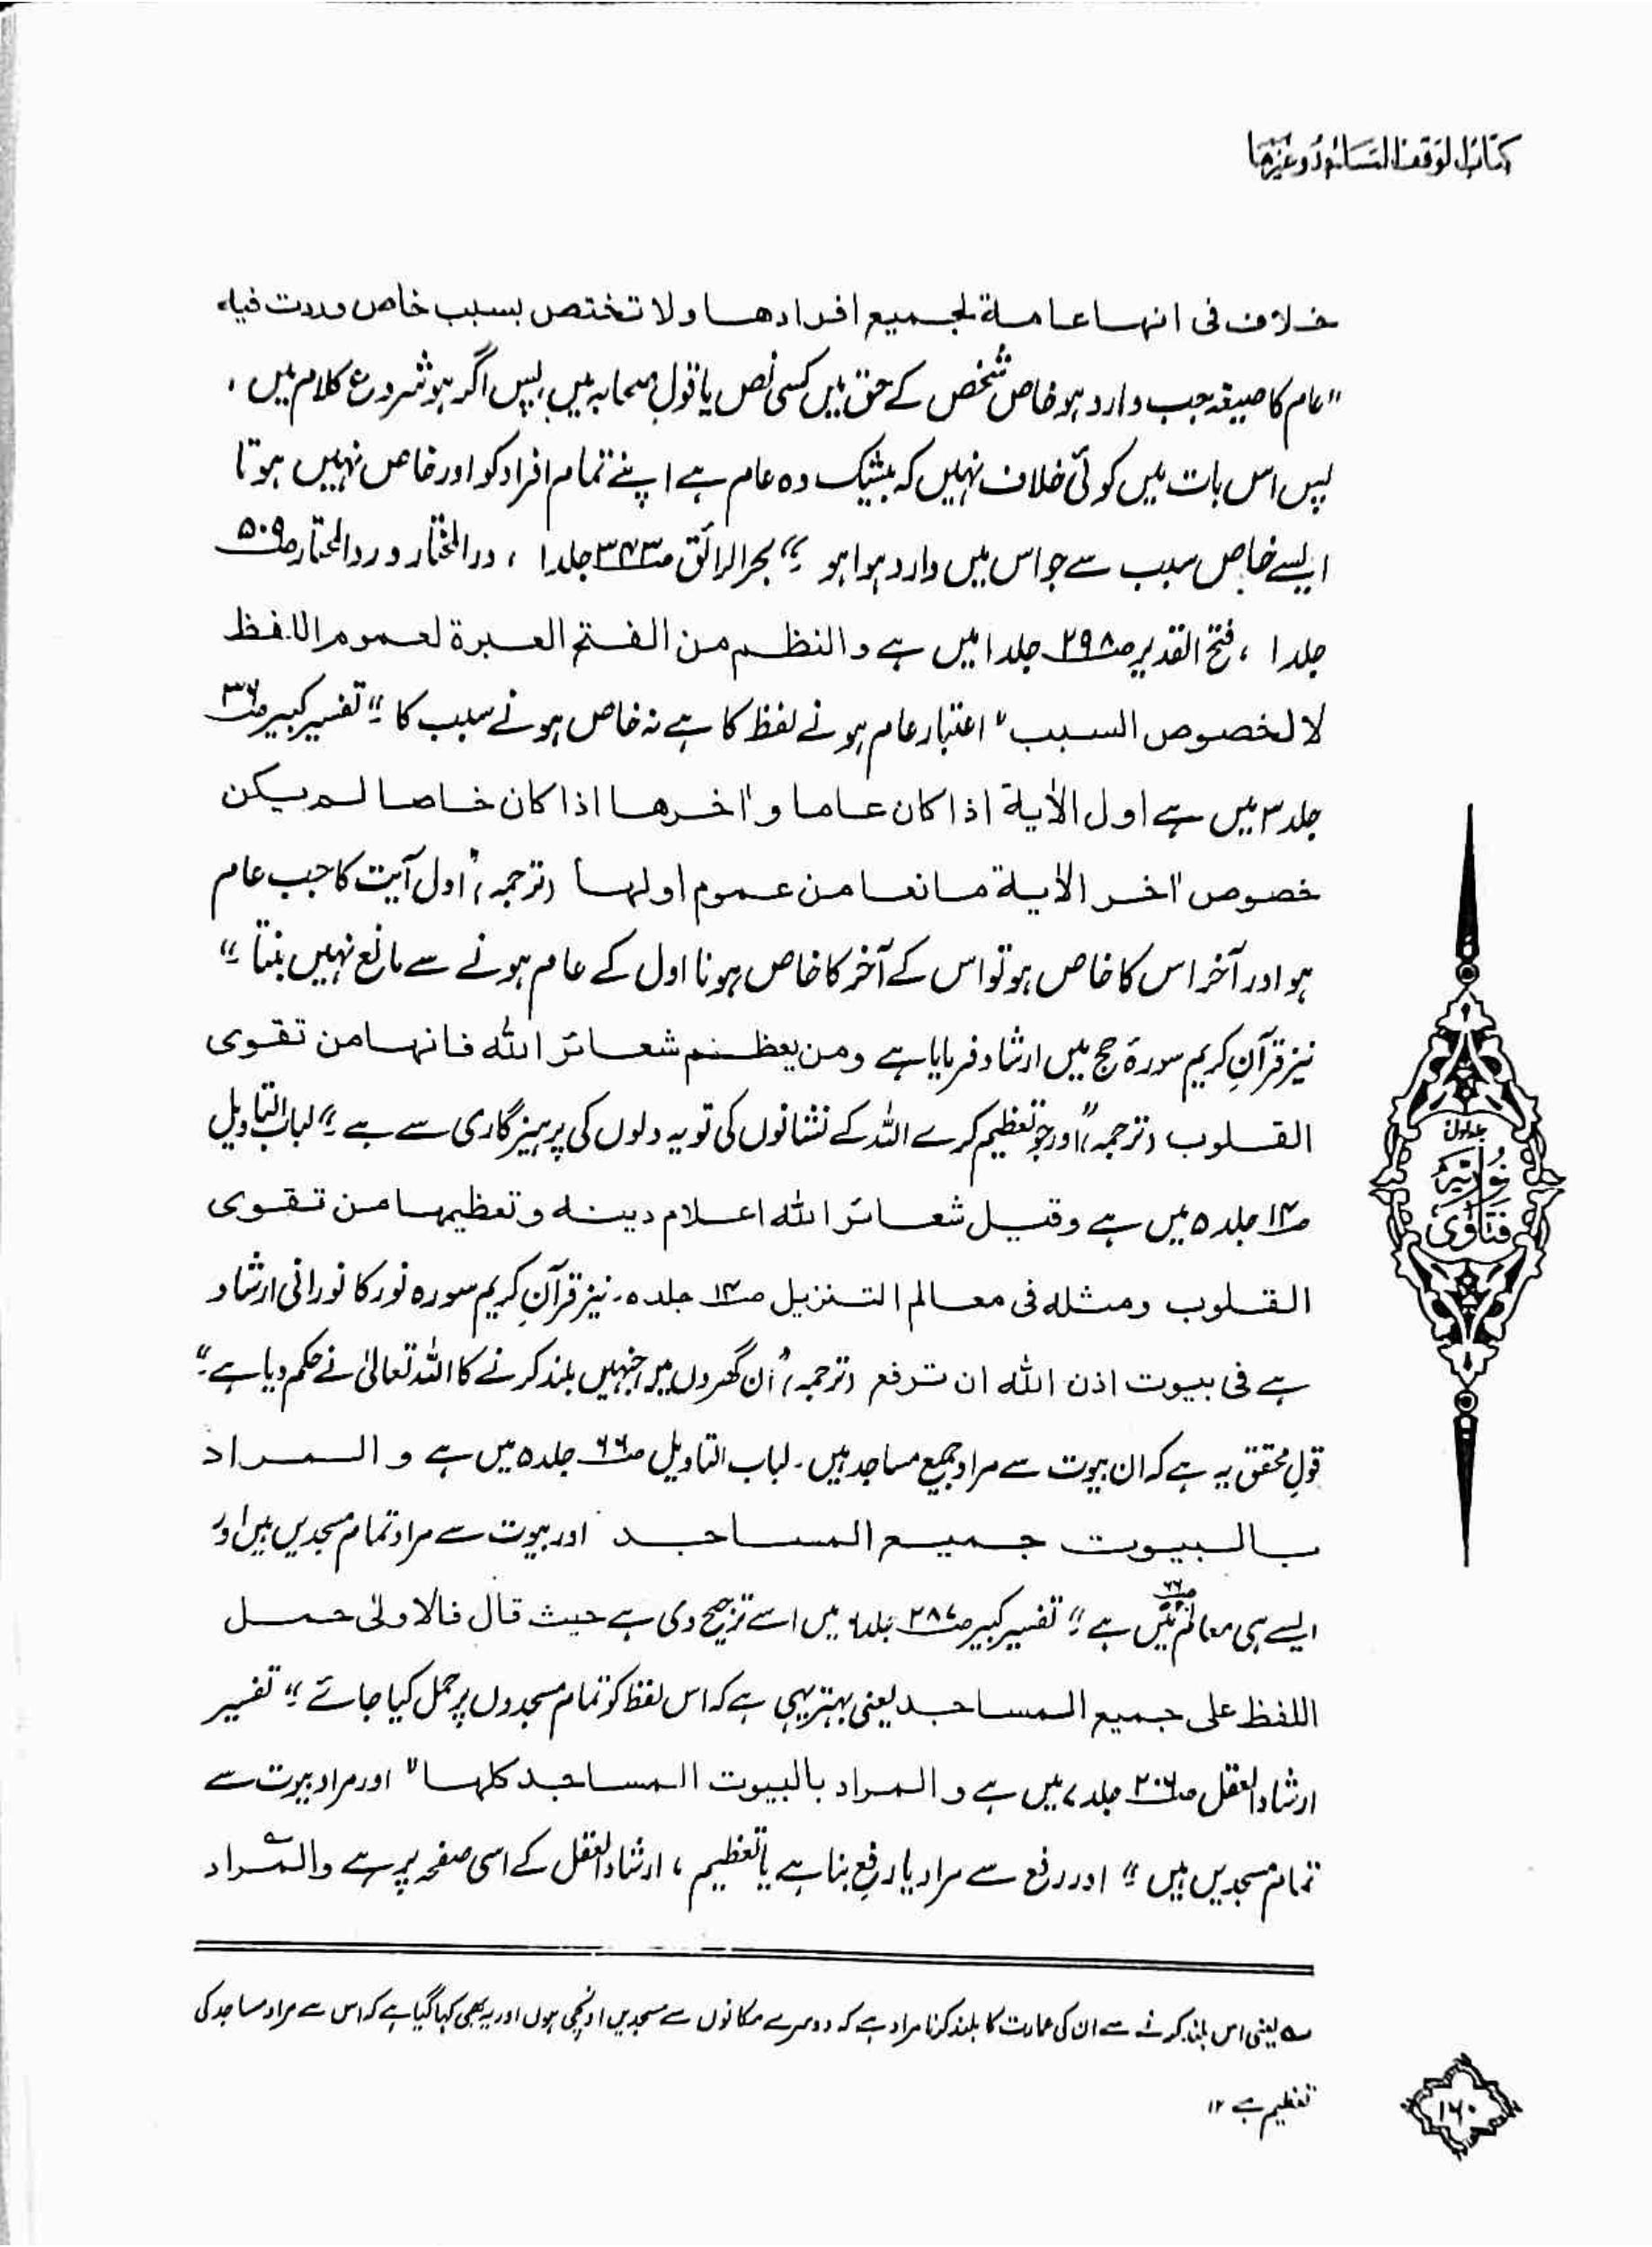 کتاب الوقف المساجد وغیرھا
خلاف فی انہا عامة لجمیع افرادھا ولا تختص بسبب خاص وردت فیہ
"عام کا صیغہ جب وارد ہو خاص شخص کے حق میں کسی نص یا قول صحابہ میں، پس اگر ہو شروع کلام میں،
پس اس بات میں کوئی خلاف نہیں کہ بیشک وہ عام ہے اپنے تمام افراد کو اور خاص نہیں ہوتا
ایسے خاص سبب سے جو اس میں وارد ہوا ہو۔" بحرالرائق صـ۳۴۳ جلد ۱ ، درالمختار و ردالمحتار صـ۵۰۹
جلد ۱ ، فتح القدیر صـ۲۹۸ جلد ۱ میں ہے والنظم من الفتح العبرة لعموم اللفظ
لا لخصوص السبب "اعتبار عام ہونے لفظ کا ہے نہ خاص ہونے سبب کا۔" تفسیر کبیر صـ۳۶
جلد ۳ میں ہے اول الاٰیة اذا کان عاما واٰخرھا اذا کان خاصا لم یکن
خصوص اٰخر الاٰیة مانعا من عموم اولہا (ترجمہ) "اول آیت کا جب عام
ہو اور آخر اس کا خاص ہو تو اس کے آخر کا خاص ہونا اول کے عام ہونے سے مانع نہیں بنتا۔"
نیز قرآنِ کریم سورۂ حج میں ارشاد فرمایا ہے ومن یعظم شعائر اللہ فانہا من تقوی
القلوب (ترجمہ) "اور جو تعظیم کرے اللہ کے نشانوں کی تو یہ دلوں کی پرہیزگاری سے ہے۔" لباب التاویل
صـ۱۴ جلد ۵ میں ہے وقیل شعائر اللہ اعلام دینہ وتعظیمہا من تقوی
القلوب ومثلہ فی معالم التنزیل صـ۱۴ جلد ۵۔ نیز قرآنِ کریم سورہ نور کا نورانی ارشاد
ہے فی بیوت اذن اللہ ان ترفع (ترجمہ) "اُن گھروں میں جنہیں بلند کرنے کا اللہ تعالیٰ نے حکم دیا ہے"
قولِ محقق یہ ہے کہ ان بیوت سے مراد جمیع مساجد ہیں۔ لباب التاویل صـ۶۶ جلد ۵ میں ہے والمراد
بالبیوت جمیع المساجد اور بیوت سے مراد تمام مسجدیں ہیں اور
ایسے ہی معالم صـ۶۶ میں ہے۔" تفسیر کبیر صـ۲۸۷ جلد ۶ میں اسے ترجیح دی ہے حیث قال فالاولیٰ حمل
اللفظ علی جمیع المساجد یعنی بہتر یہی ہے کہ اس لفظ کو تمام مسجدوں پر حمل کیا جائے۔" تفسیر
ارشاد العقل صـ۲۰۶ جلد ۷ میں ہے والمراد بالبیوت المساجد کلہا" اور مراد بیوت سے
تمام مسجدیں ہیں۔" اور رفع سے مراد یا رفعِ بنا ہے یا تعظیم، ارشاد العقل کے اسی صفحہ پر ہے والمراد
جلد اول
فتاویٰ نوریہ
؎ یعنی اس بلند کرنے سے ان کی عمارت کا بلند کرنا مراد ہے کہ دوسرے مکانوں سے مسجدیں اونچی ہوں اور یہ بھی کہا گیا ہے کہ اس سے مراد مساجد کی
تعظیم ہے ۱۲
۱۶۰